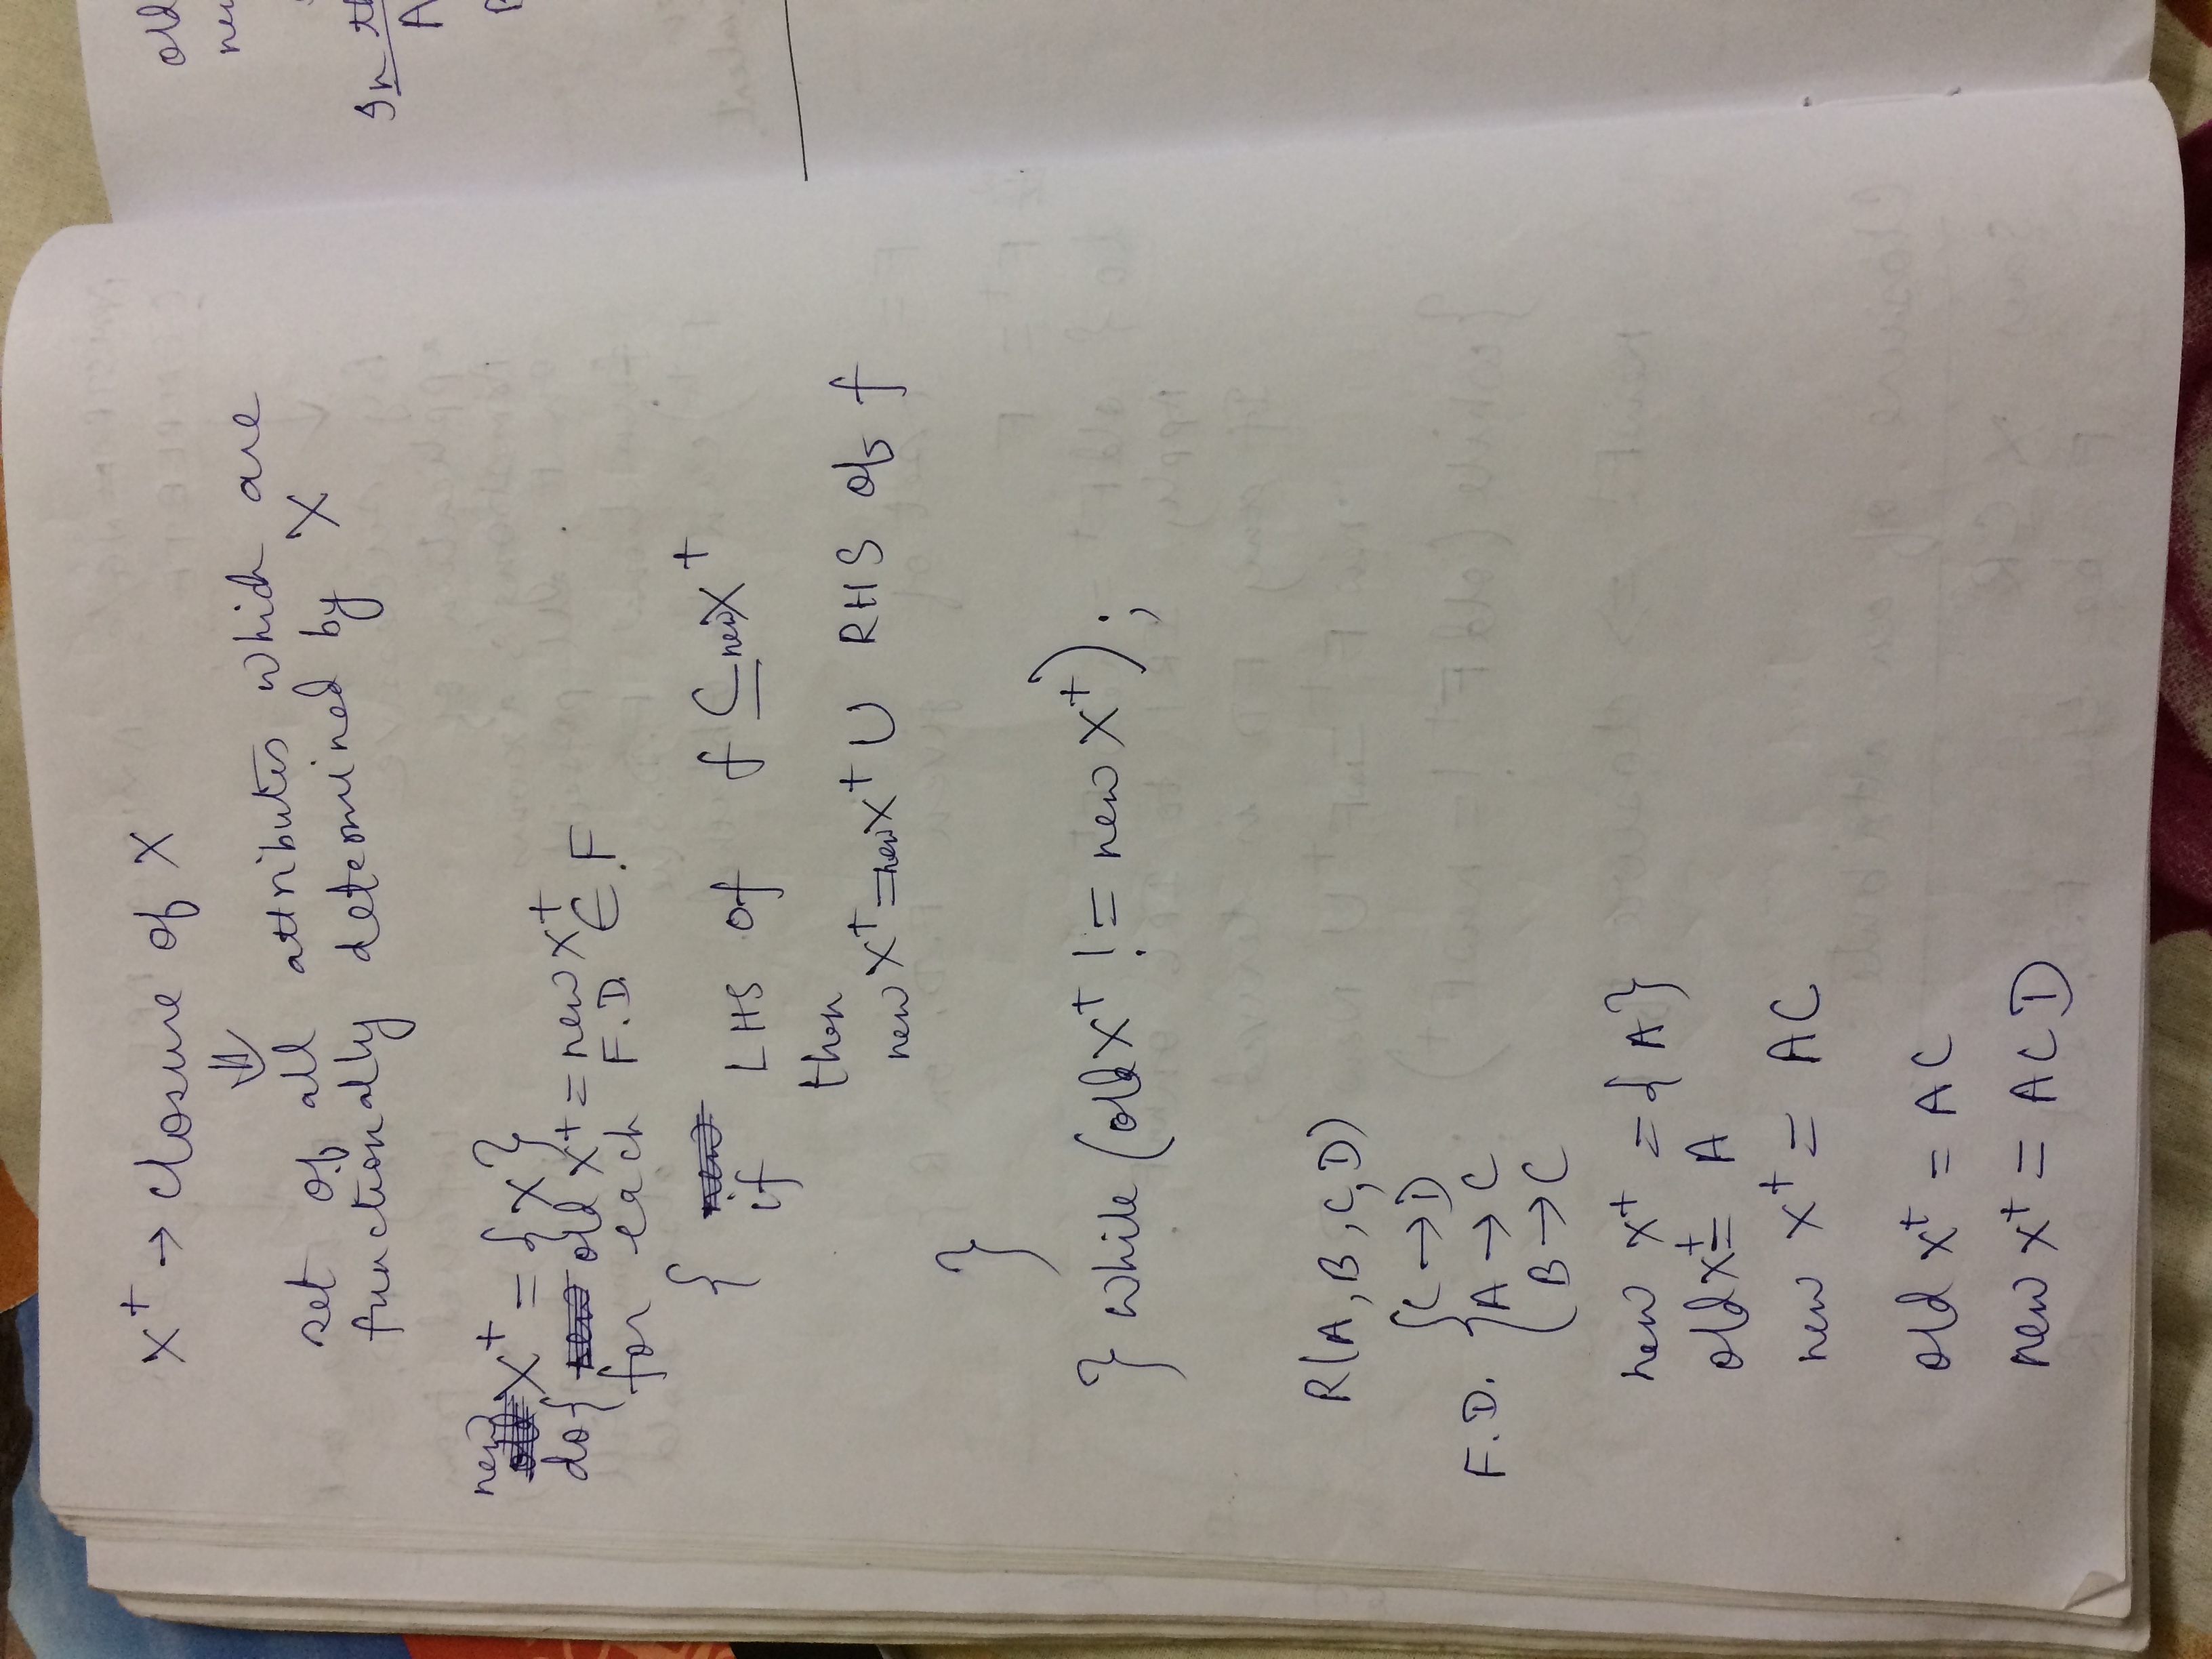 X⁺ → closure of X
⇓
set of all attributes which are
functionally determined by X
new
X⁺ = {X}
do{ old X⁺ = new X⁺
for each F.D. ∈ F
{
if LHS of f ⊆ new X⁺
then
new X⁺ = new X⁺ ∪ RHS of f
}
} while (old X⁺ != new X⁺);
R(A, B, C, D)
F.D. { C → D
A → C
B → C
new X⁺ = {A}
old X⁺ = A
new X⁺ = AC
old X⁺ = AC
new X⁺ = ACD
old
In th
A